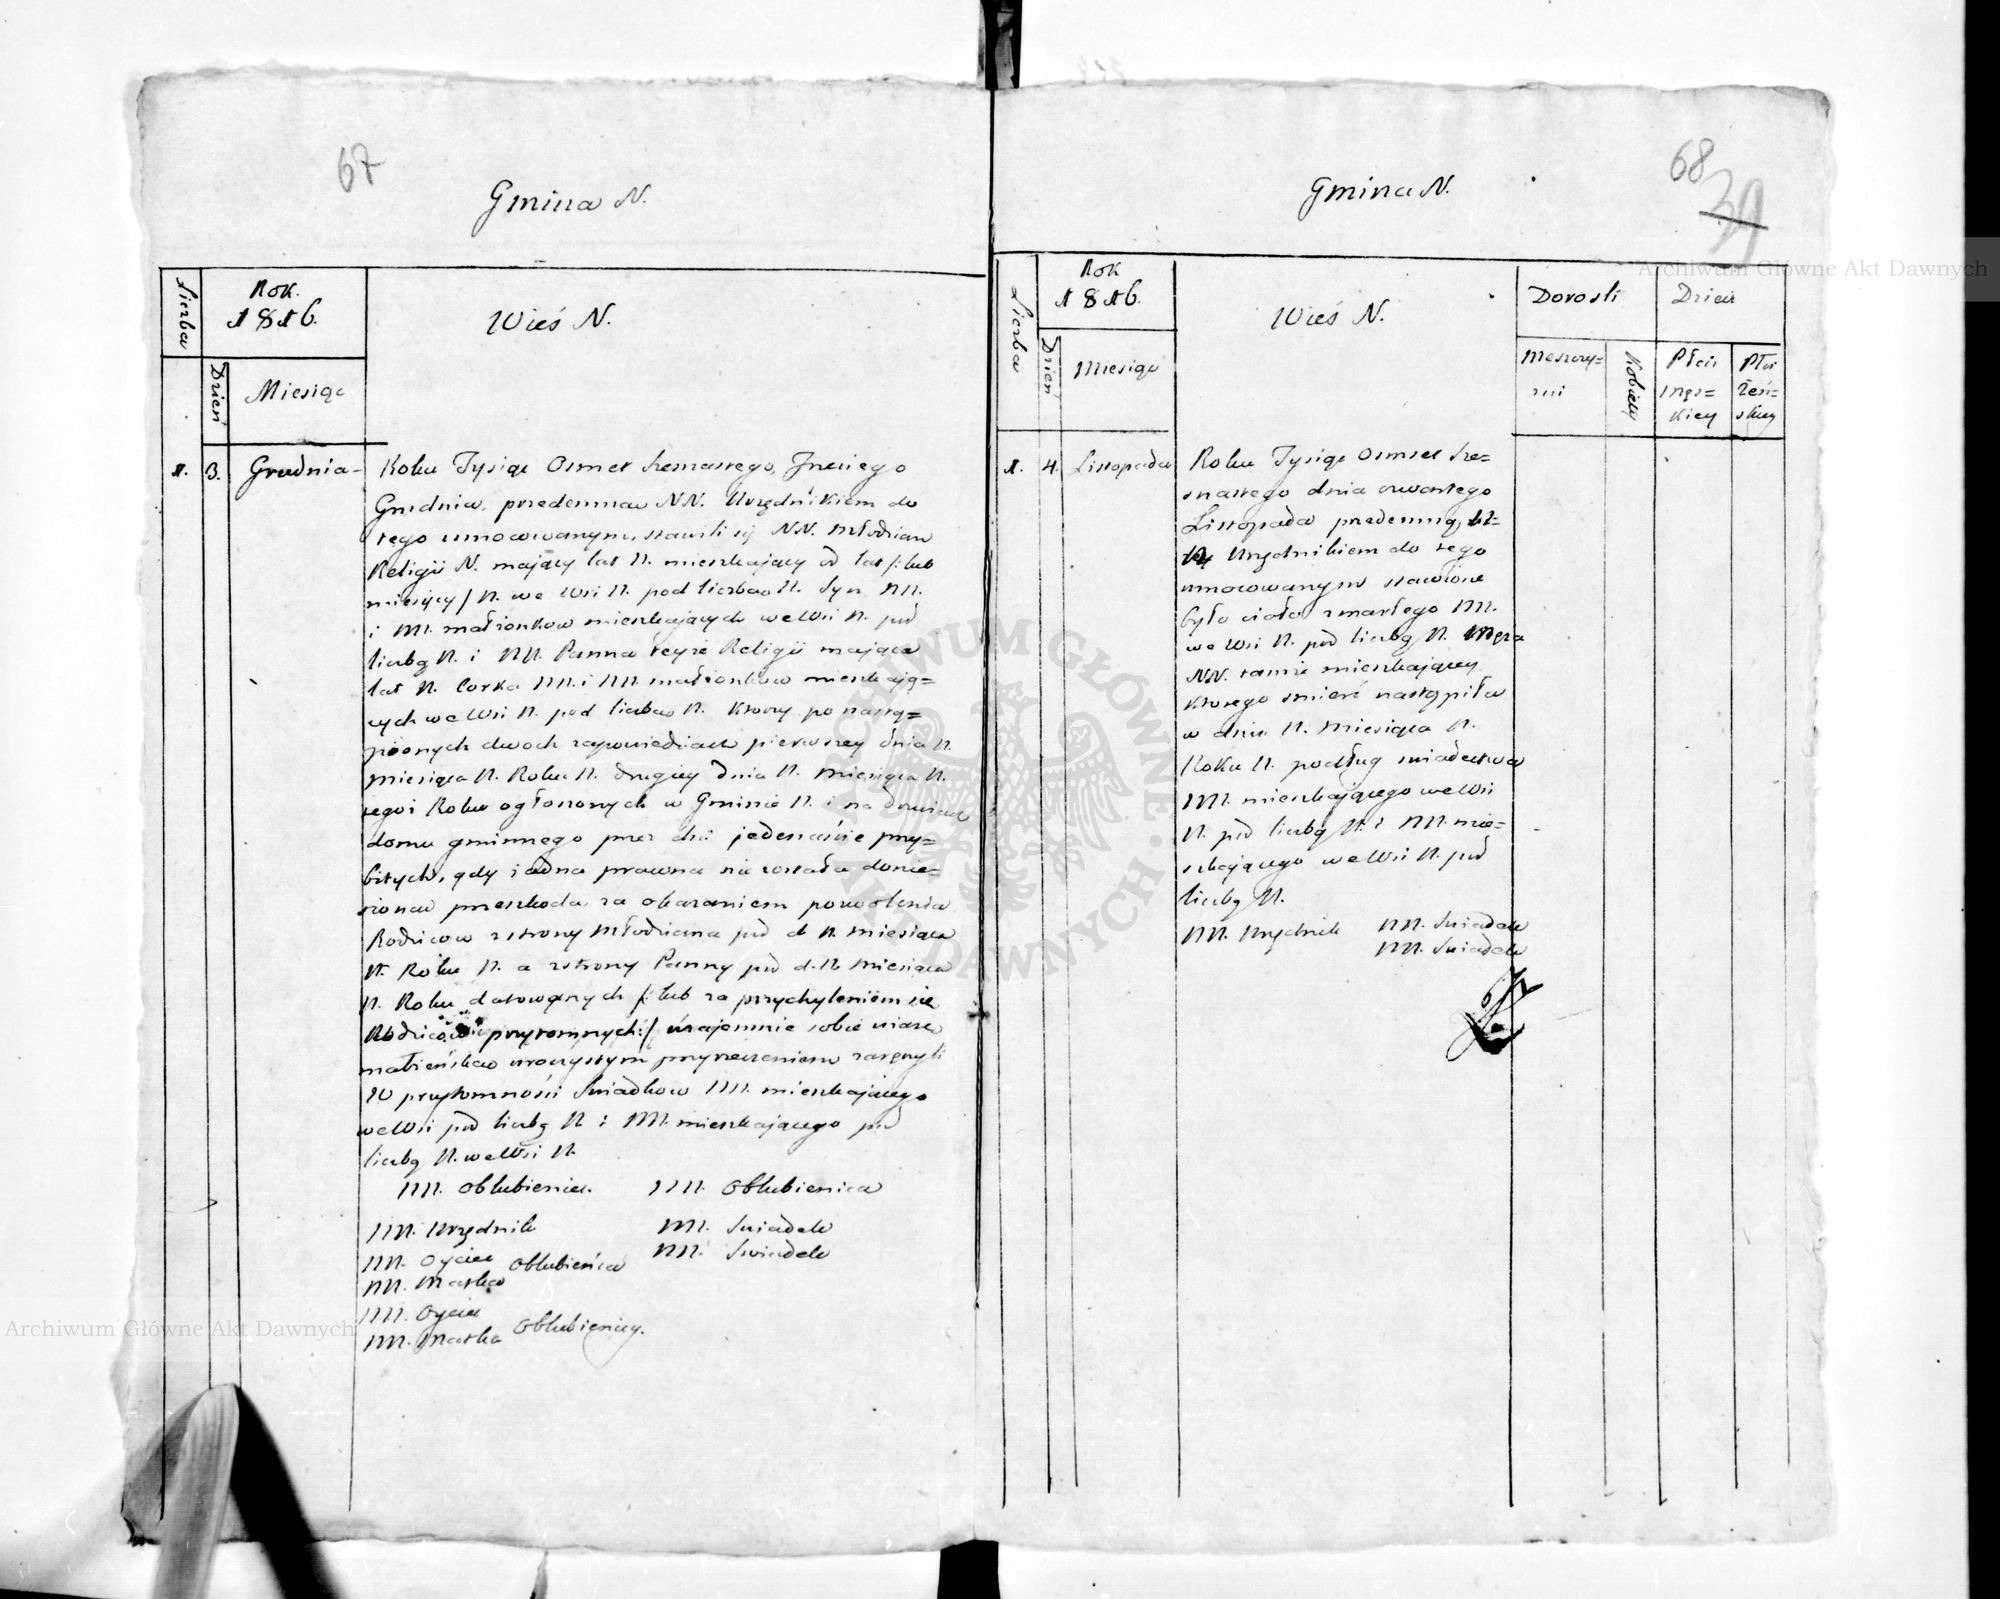 67
Gmina N.
Liczba
Rok.
1816.
Wieś N.
Dzień
Miesiąc
1. 3. Grudnia
Roku Tysiąc Osmset szesnastego, Trzeciego
Grudnia, przedemną NN. Urzędnikiem do
tego umocowanym, stawili się NN. Młodzian
Religii N. maiący lat N. mieszkaiący od lat /: lub
miesięcy / N. we Wsi N. pod liczbą N. Syn NN.
i NN. małżonkow mieszkaiących we Wsi N. pod
liczbą N. i NN. Panna teyże Religii maiąca
lat N. Corka NN. i NN. małżonkow mieszkaią=
cych we Wsi N. pod liczbą N. Ktorzy po nastą=
pionych dwoch zapowiedziach pierwszey dnia N.
miesiąca N. Roku N. drugiey dnia N. Miesiąca N.
tegoż Roku ogłoszonych w Gminie N. i na drzwiach
domu gminnego przez dni jedenaście przy=
bitych, gdy żadna prawna nie została donie=
siona przeszkoda, za okazaniem pozwolenia
Rodzicow z strony Młodziana pod d. N. miesiąca
N. Roku N. a z strony Panny pod d. N. Miesiąca
N. Roku datowanych /: lub za przychyleniem się
Rodzicow przytomnych :/ wzaiemnie sobie wiarę
małżeńską uroczystym przyrzeczeniem zaręczyli
W przytomności Swiadkow NN. mieszkaiącego
we Wsi pod liczbą N. i NN. mieszkaiącego pod
liczbą N. we Wsi N.
NN. Oblubieniec. NN. Oblubienica
NN. Urzędnik NN. Swiadek
NN. Oyciec Oblubieńca NN. Swiadek
NN. Matka
NN. Oyciec
NN. Matka Oblubienicy.
68
39
Gmina N.
Liczba
Rok
1816.
Wieś N.
Dorosli
Dzieci
Dzień
Miesiąc
Męszczy=
zni
Kobiety
Płci
męs=
kiey
Płci
Żeń=
skiey
1. 4. Listopada
Roku Tysiąc Osmset sze=
snastego dnia czwartego
Listopada przedemną,
Urzędnikiem do tego
umocowanym stawione
było ciało zmarłego NN.
we Wsi N. pod liczbą N. Męża
NN. tamże mieszkaiącey
ktorego smierć nastąpiła
w dniu N. Miesiąca N.
Roku N. podług swiadectwa
NN. mieszkaiącego we Wsi
N. pod liczbą N. i NN. mie=
szkaiącego we Wsi N. pod
liczbą N.
NN. Urzędnik NN. Swiadek
NN. Swiadek
Archiwum Główne Akt Dawnych
Archiwum Główne Akt Dawnych
ARCHIWUM GŁÓWNE AKT DAWNYCH